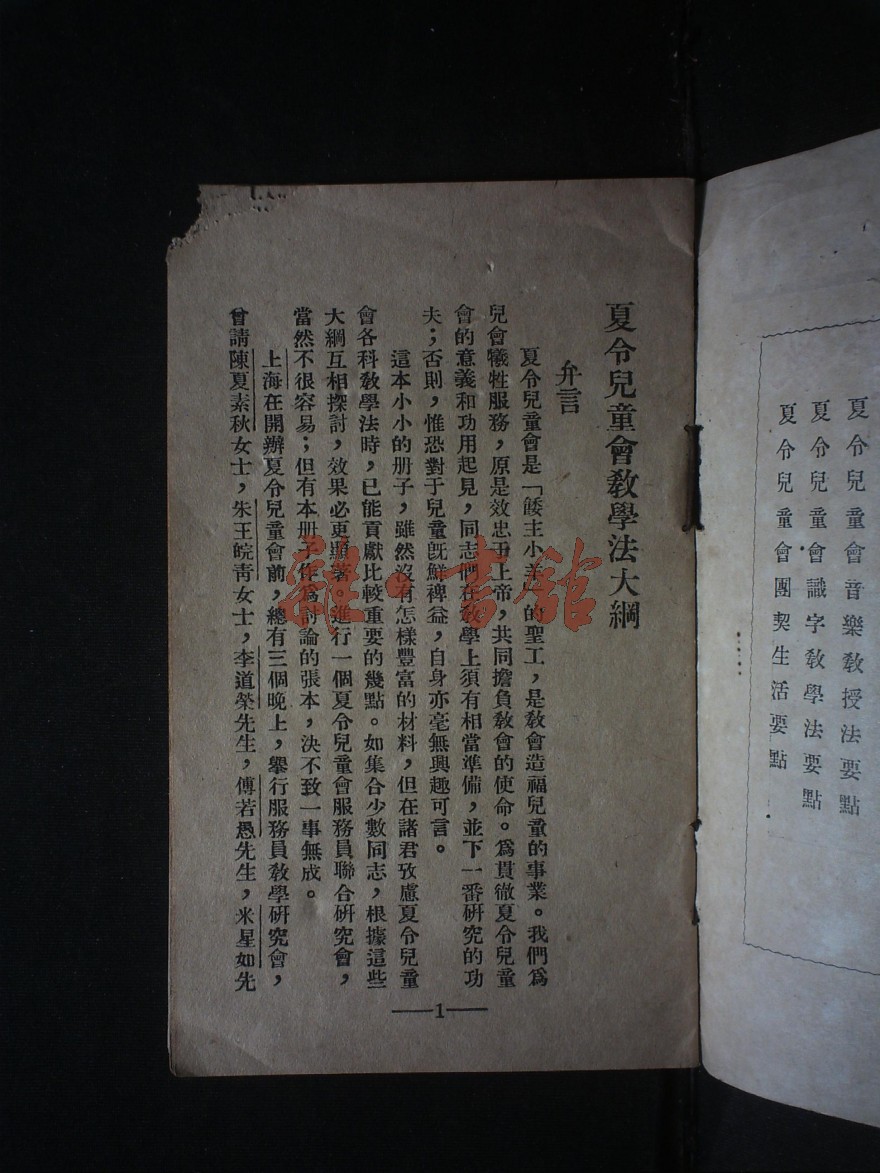 夏令兒童會音樂教授法要點
夏令兒童會識字教學法要點
夏令兒童會團契生活要點
夏令兒童會教學法大綱
弁言
夏令兒童會是「餧主小羊」的聖工，是教會造福兒童的事業。我們爲
兒會犧牲服務，原是效忠于上帝，共同擔負教會的使命。爲貫徹夏令兒童
會的意義和功用起見，同志們在教學上須有相當準備，並下一番硏究的功
夫；否則，惟恐對于兒童旣鮮裨益，自身亦毫無興趣可言。
這本小小的册子，雖然沒有怎樣豐富的材料，但在諸君攷慮夏令兒童
會各科教學法時，已能貢獻比較重要的幾點。如集合少數同志，根據這些
大綱互相探討，效果必更顯著。進行一個夏令兒童會服務員聯合硏究會，
當然不很容易；但有本册子作爲討論的張本，決不致一事無成。
上海在開辦夏令兒童會前，總有三個晚上，舉行服務員教學硏究會，
曾請陳夏素秋女士，朱王皖靑女士，李道榮先生，傅若愚先生，米星如先
—1—
雜·書館